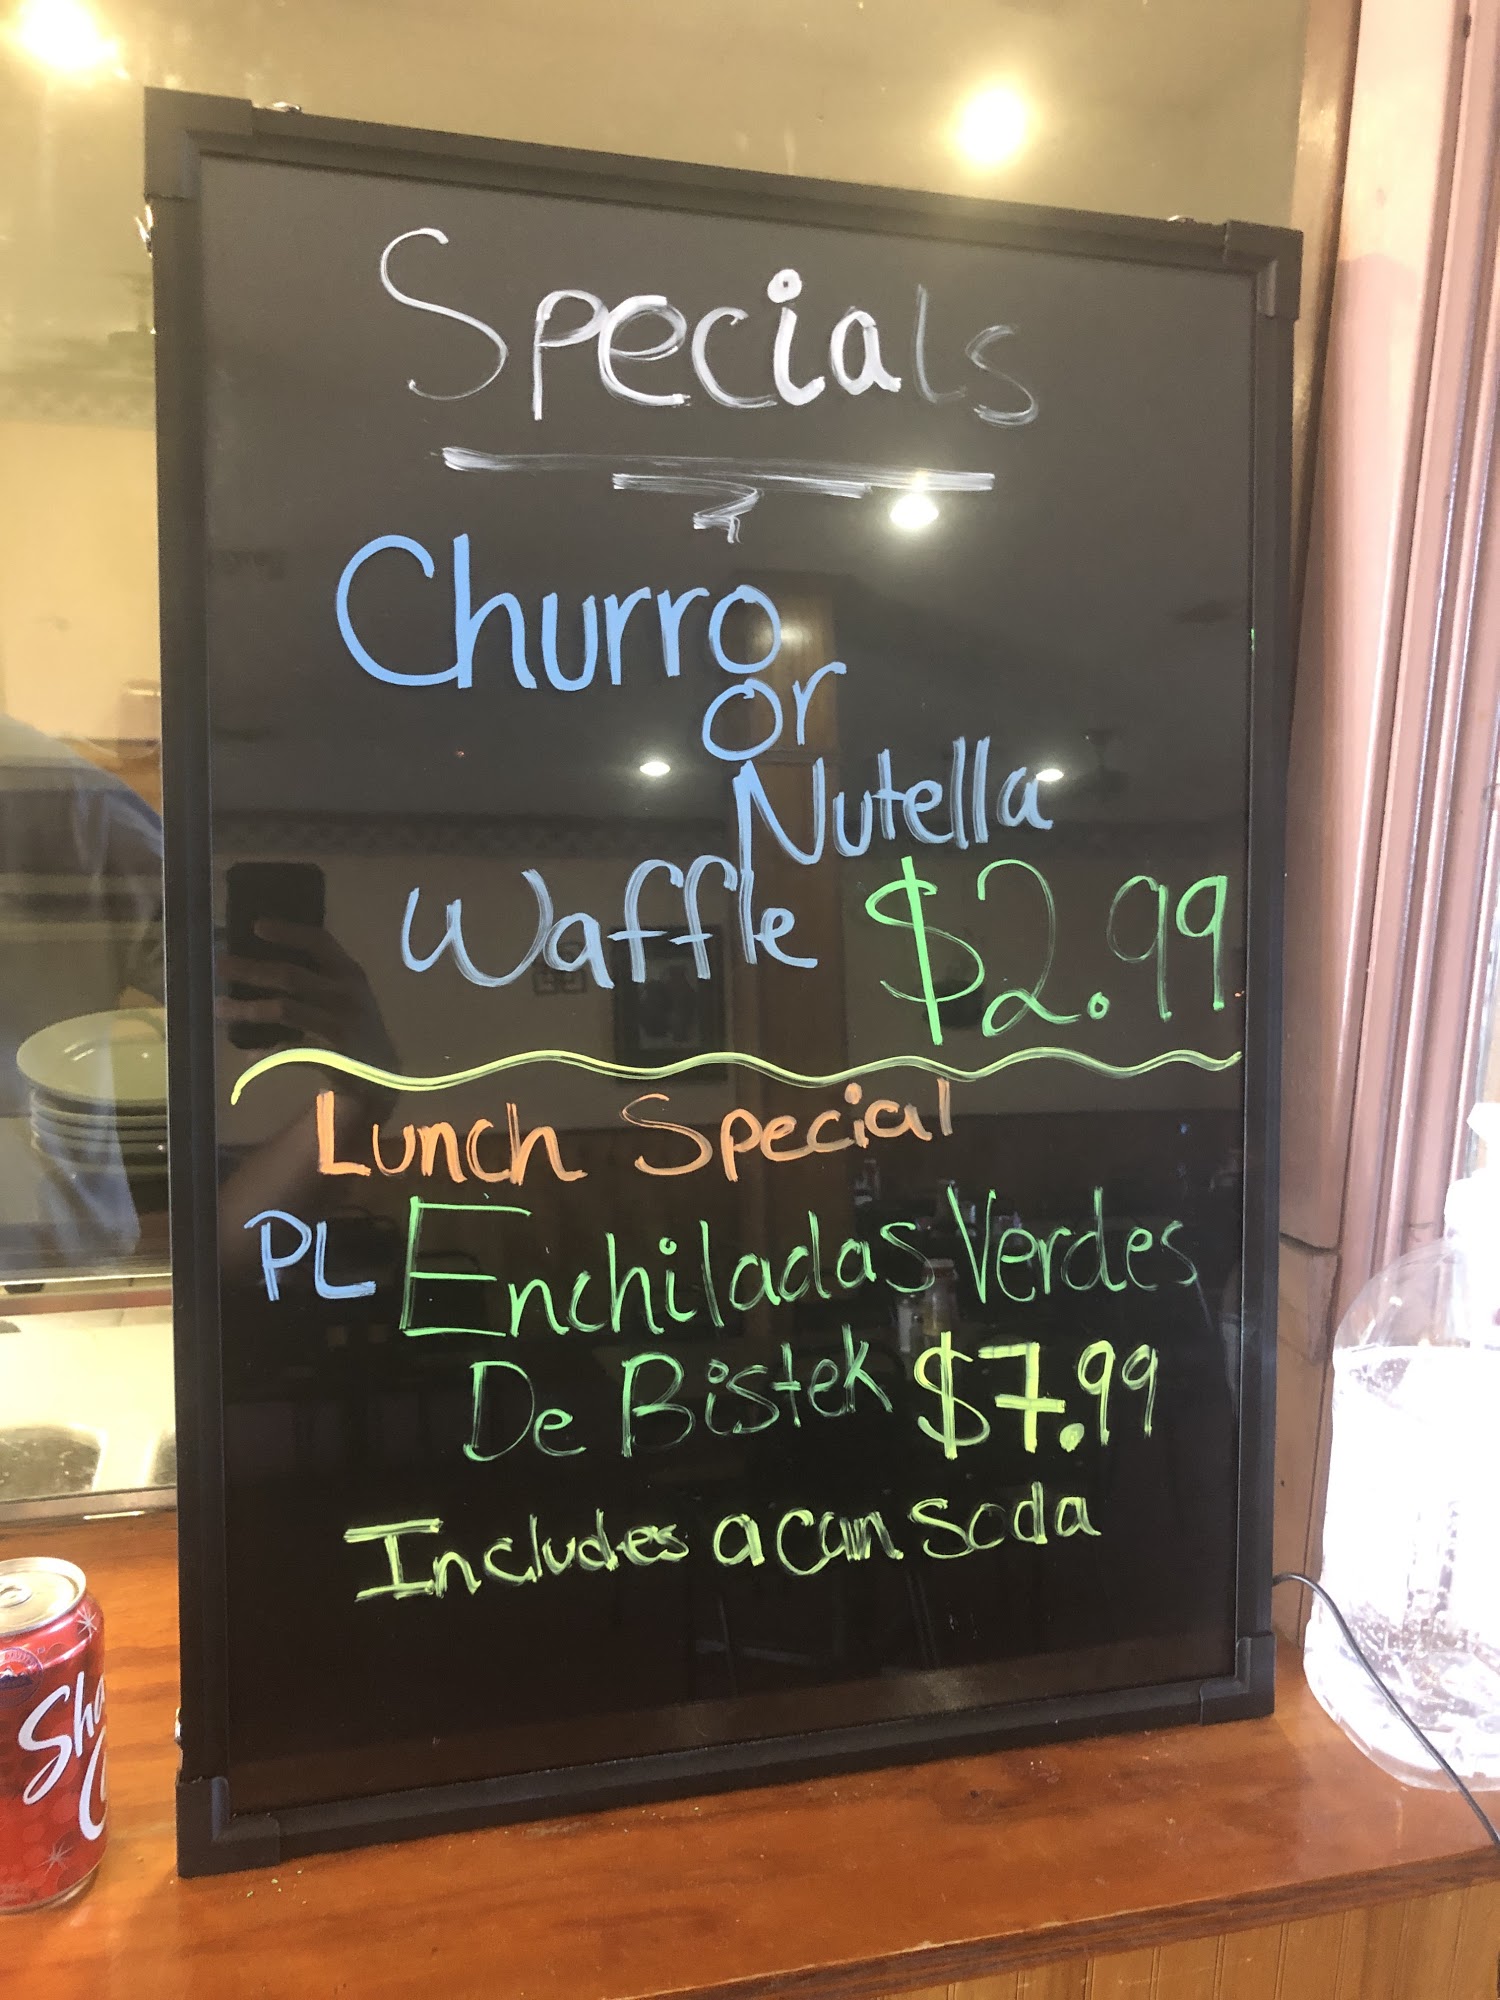 Specials
Churro
or
Nutella
Waffle $2.99
Lunch Special
PL Enchiladas Verdes
De Bistek $7.99
Includes a can soda
Sha